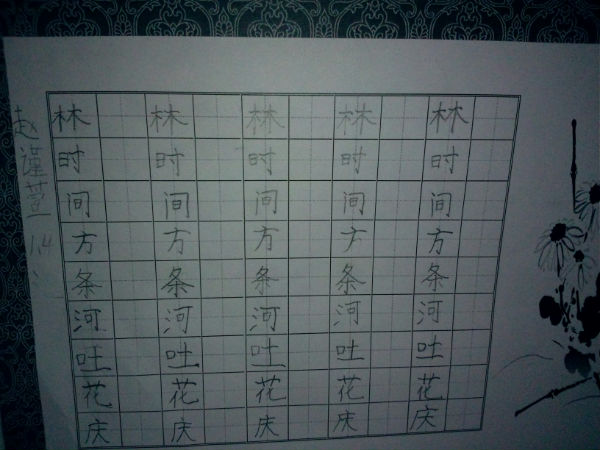 赵谨萱 1.4
林 林 林 林 林
时 时 时 时 时
间 间 间 间 间
方 方 方 方 方
条 条 条 条 条
河 河 河 河 河
吐 吐 吐 吐 吐
花 花 花 花 花
庆 庆 庆 庆 庆